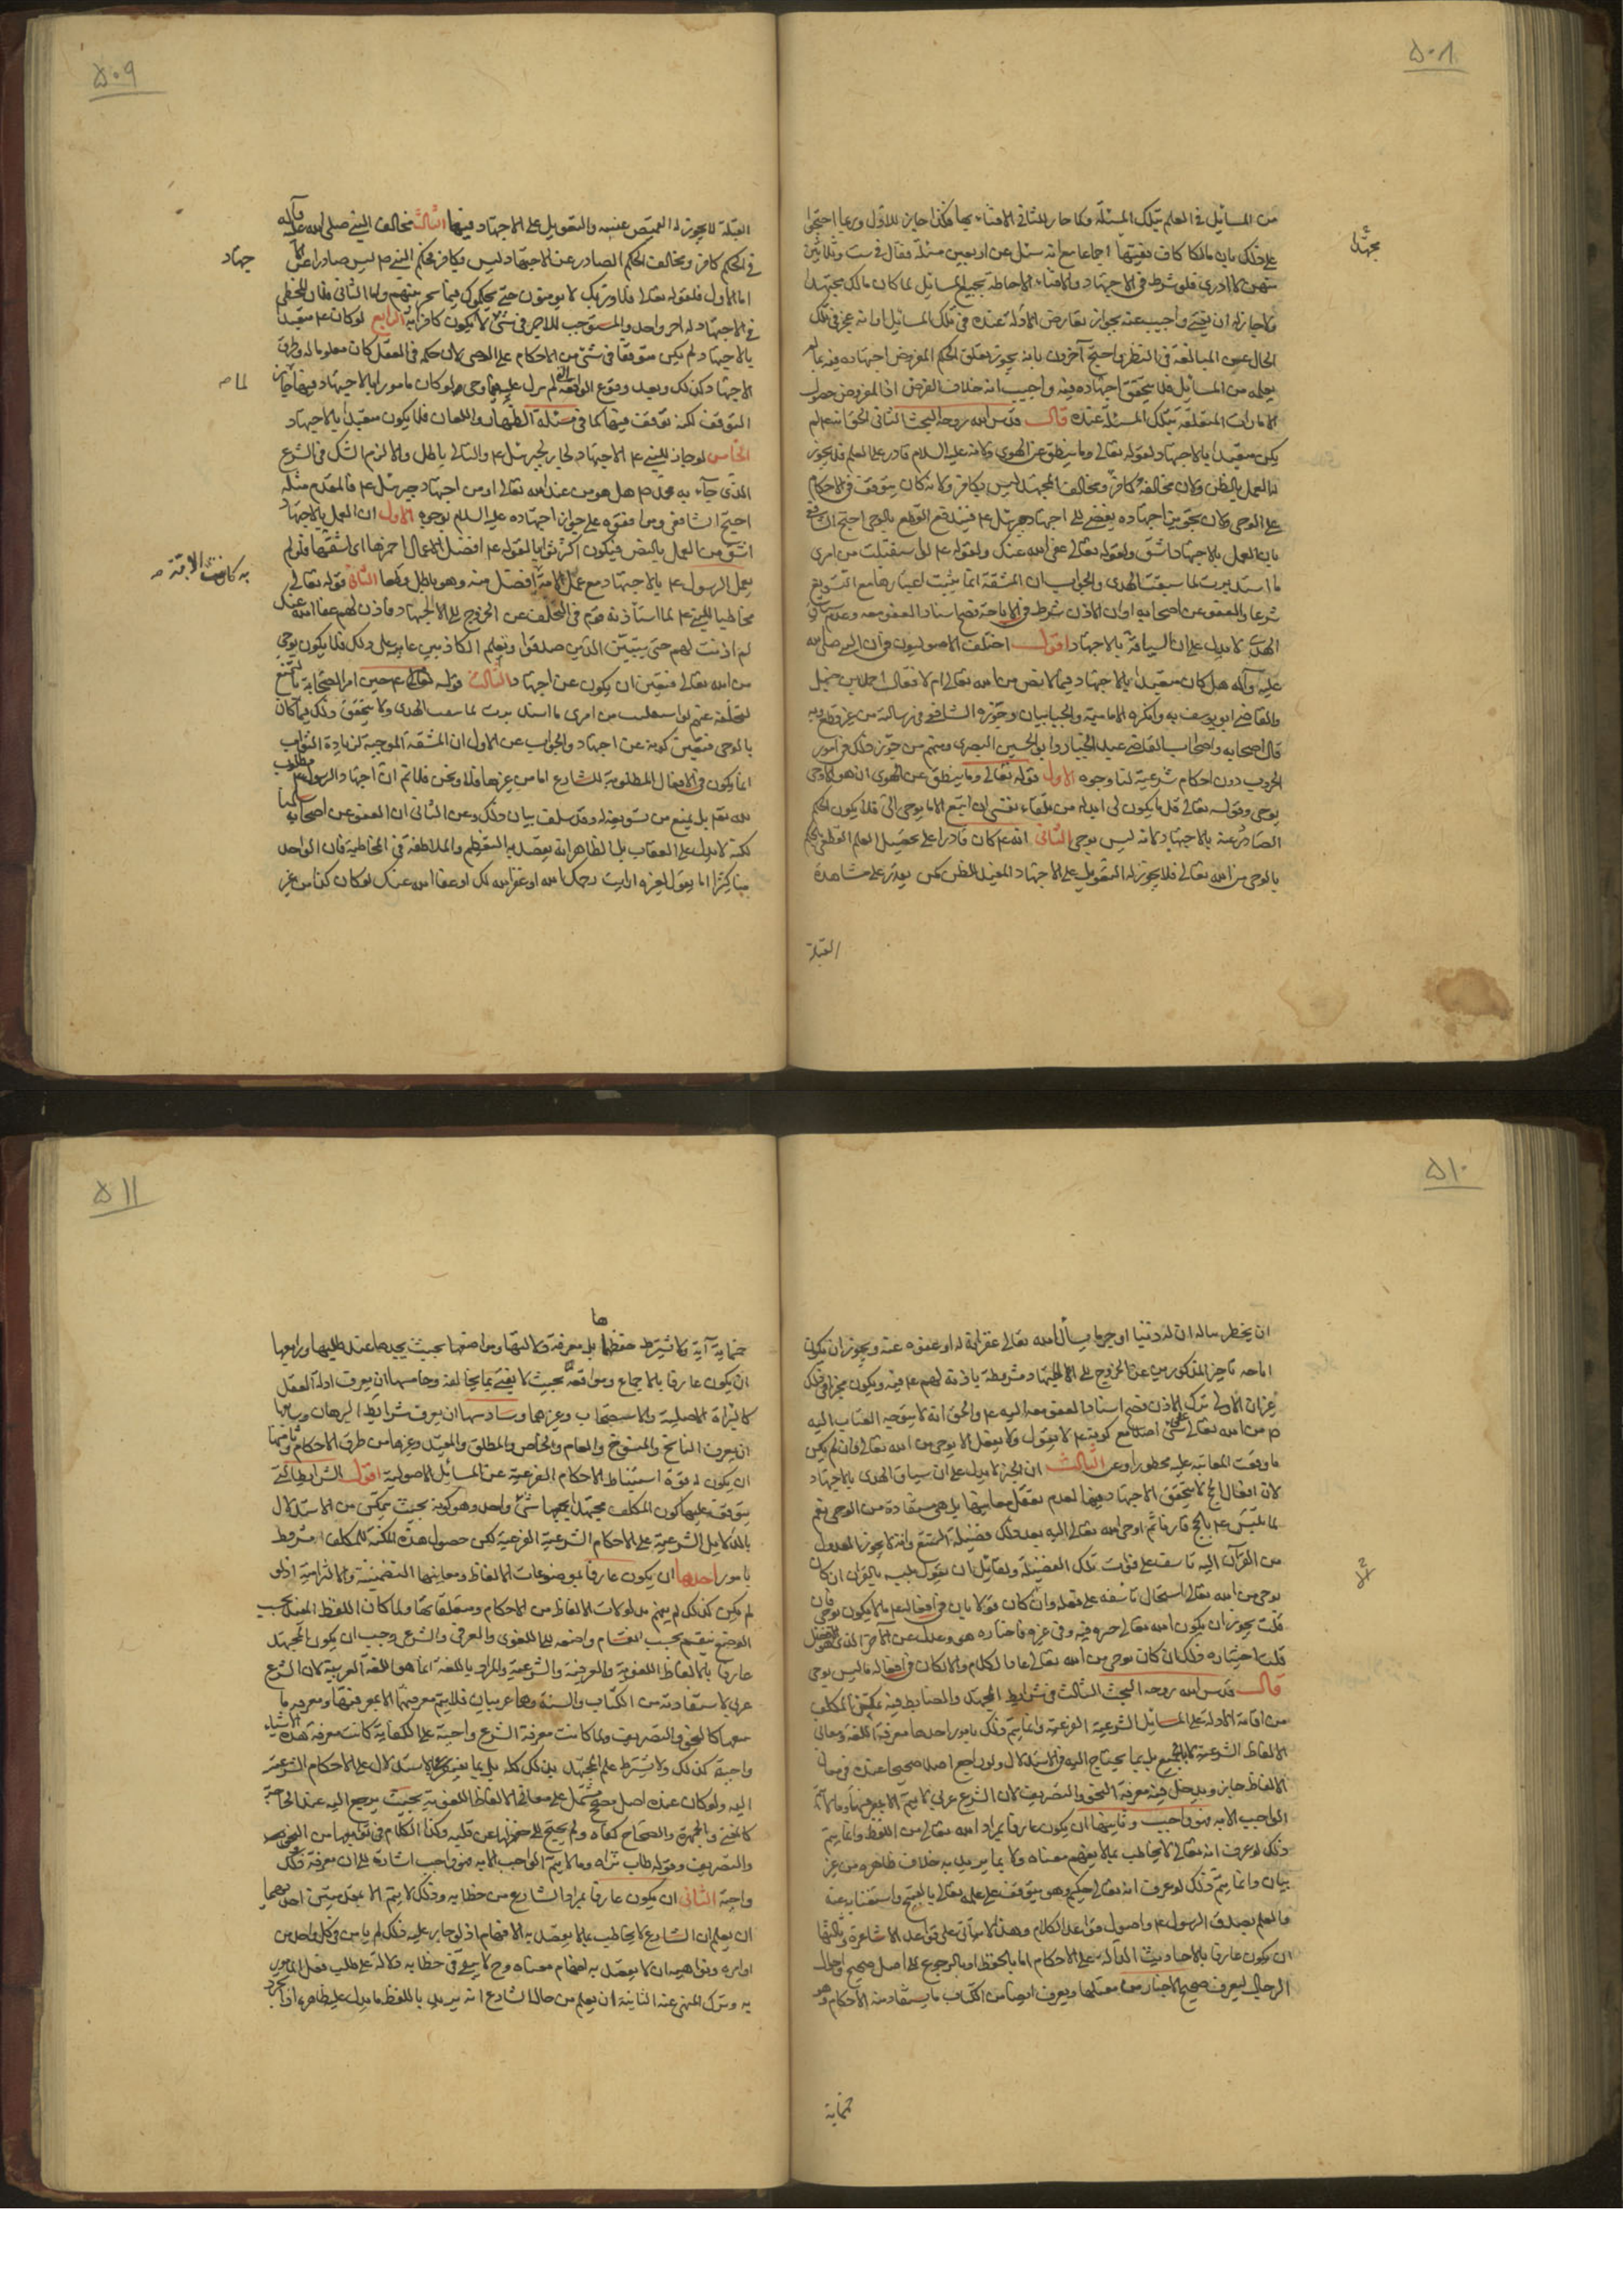 ٥٠٨
من المسائل في العلم بتلك المسئلة وكما جاز للثاني الافتاء بها فكذا جاز للاول وربما احتجوا
على ذلك بان مالكا كان فقيها اجماعا مع انه سئل عن اربعين مسئلة فقال في ست وثلاثين
منهن لا ادري فلو شرط في الاجتهاد والافتاء الاحاطة بجميع المسائل لما كان مالك مجتهدا
مجتهدا
ولا جاز له ان يفتي واجيب عنه بجواز تعارض الادلة عنده في تلك المسائل او انه عجز في تلك
الحال عن المبالغة في النظر احتج آخرون بانه يجوز تعلق الحكم المفروض اجتهاده فيه بما لم
يعلمه من المسائل فلا يتحقق اجتهاده فيه واجيب انه خلاف الفرض اذ المفروض حصول
الامارات المتعلقة بتلك المسئلة عنده قال قدس الله روحه البحث الثاني الحق انه عم لم
يكن متعبدا بالاجتهاد لقوله تعالى وما ينطق عن الهوى ولانه عليه السلام قادر على العلم فلا يجوز
له العمل بالظن ولان مخالفه كافر ومخالف المجتهد ليس بكافر ولانه كان يتوقف في الاحكام
على الوحي ولان تجويز اجتهاده يفضي الى اجتهاد جبرئيل عم فيندفع القطع بالوحي احتج الشافعي
بان العمل بالاجتهاد اشق ولقوله تعالى عفى الله عنك ولقوله عم لو استقبلت من امري
ما استدبرت لما سقت الهدي والجواب ان المشقة انما يثبت اعتبارها مع التسويغ
شرعا والعفو عن اصحابه او ان الاذن شرط في الاباحة فصح اسناد العفو معه وعدم سياق
الهدي لا يدل على ان السياقة بالاجتهاد اقول اختلف الاصوليون في ان النبي صلى الله
عليه وآله هل كان متعبدا بالاجتهاد فيما لا نص من الله تعالى ام لا فقال احمد بن حنبل
والقاضي ابو يوسف به وانكره الامامية والجبائيان وجوزه الشافعي في رسالته من غير قطع وبه
قال اصحابه واصحاب القاضي عبد الجبار وابو الحسين البصري ومنهم من جوز ذلك في امور
الحروب دون احكام شرعية لنا وجوه الاول قوله تعالى وما ينطق عن الهوى ان هو الا وحي
يوحى وقوله تعالى قل ما يكون لي ان ابدله من تلقاء نفسي ان اتبع الا ما يوحى الي فلا يكون الحكم
الصادر عنه بالاجتهاد لانه ليس بوحي الثاني انه عم كان قادرا على تحصيل العلم القطعي بالحكم
بالوحي من الله تعالى فلا يجوز له التعويل على الاجتهاد المفيد للظن كمن يقدر على مشاهدة
القبلة
٥٠٩
القبلة لا يجوز له التغميض عنه والتعويل على الاجتهاد فيها الثالث مخالف النبي صلى الله عليه وآله
في الحكم كافر ومخالف الحكم الصادر عن الاجتهاد ليس بكافر فحكم النبي ص ليس صادرا عن
جتهاد
اما الاول فلقوله تعالى فلا وربك لا يؤمنون حتى يحكموك فيما شجر بينهم واما الثاني فلان المخطئ
في الاجتهاد له اجر واحد والمستوجب للاجر في شيء لا يكون كافرا به الرابع لو كان عم متعبدا
بالاجتهاد لم يكن متوقفا في شيء من الاحكام على الوحي لان حكمه في العقل كان معلوما له وطرق
الاجتهاد كذلك وبعد وقوع الواقعة لم ينزل عليه فيها وحي ولو كان مامورا بالاجتهاد فيها لما جاز
لما ص
التوقف لكنه توقف فيها كما في مسئلة الظهار واللعان فلا يكون متعبدا بالاجتهاد
الخامس لو جاز للنبي عم الاجتهاد لجاز لجبرئيل عم والتالي باطل والا لزم الشك في الشرع
الذي جاء به محمد ص هل هو من عند الله تعالى او من اجتهاد جبرئيل عم فالمقدم مثله
احتج الشافعي ومن وافقه على جواز اجتهاده عليه السلام بوجوه الاول ان العمل بالاجتهاد
اشق من العمل بالنص فيكون اكثر ثوابا لقوله عم افضل الاعمال احمزها اي اشقها فلو لم
يعمل الرسول عم بالاجتهاد مع عمل الامة به كانت الامة افضل منه وهو باطل قطعا الثاني قوله تعالى
به كانت الامة ص
مخاطبا للنبي عم لما استأذنه قوم في التخلف عن الخروج الى الجهاد فاذن لهم عفا الله عنك
لم اذنت لهم حتى يتبين الذين صدقوا وتعلم الكاذبين عاتبه على ذلك فلا يكون بوحي
من الله تعالى فتعين ان يكون عن اجتهاد الثالث قوله عم حين امر الصحابة بالتمتع
لتخلفه عنهم لو استقبلت من امري ما استدبرت لما سقت الهدي ولا يتحقق ذلك فيما كان
بالوحي فتعين كونه عن اجتهاد والجواب عن الاول ان المشقة الموجبة لزيادة الثواب
انما يكون في الافعال المطلوبة للشارع اما من غيرها فلا ونحن فلا نم ان اجتهاد الرسول عم مطلوب
لله تعم بل نمنع من تسويغه له وقد سلف بيان ذلك وعن الثاني ان العفو عن اصحابه
لكنه لا يدل على العقاب بل الظاهر انه يقصد به التعظيم والملاطفة في المخاطبة فان الواحد
منا كثيرا ما يقول لغيره ارايت رحمك الله او غفر الله لك او عفا الله عنك لو كان كذا من غير
٥١٠
ان يخطر بباله ان له ذنبا او جرما يسأل الله تعالى غفرانه له او عفوه عنه ويجوز ان يكون
اباحة تاخر المذكورين عن الخروج الى الجهاد مشروطة باذنه لهم عم فيه ويكون مخيرا في ذلك
غير ان الاولى ترك الاذن فصح اسناد العفو معه اليه عم والحق انه لا يتوجه العتاب اليه
ص من الله تعالى على شيء اصلا مع كونه عم لا يقول ولا يفعل الا بوحي من الله تعالى فان لم يكن
ما وقعت المعاتبة عليه محظورا وعن الثالث ان الخبر لا يدل على ان سياق الهدي بالاجتهاد
لان افعال الحج لا يتحقق الاجتهاد فيها لعدم تعقل معانيها بل هي مستفادة من الوحي نعم
لما تلبس عم بالحج قارنا ثم اوحى الله تعالى اليه بعد ذلك فضيلة التمتع وانه لا يجوز العدول
من القران اليه تاسف على فوات تلك الفضيلة ولقائل ان يقول تلبسه بالقران ان كان
بوحي من الله تعالى استحال تأسفه على فعله وان كان قولا بان في افعاله عم ما لا يكون بوحي فان
قلت يجوز ان يكون الله تعالى خيره فيه وفي غيره فاختاره هو وعدل عن الآخر الذي هو افضل
قلت اختياره ذلك ان كان بوحي من الله تعالى عاد الكلام والا لكان في افعاله ما ليس بوحي
قال قدس الله روحه البحث الثالث في شرائط المجتهد والضابط فيه تمكن المكلف
من اقامة الادلة على المسائل الشرعية الفرعية وانما يتم ذلك بامور احدها معرفة اللغة ومعاني
الالفاظ الشرعية لا بالجميع بل بما يحتاج اليه في الاستدلال ولو راجع اصلا صحيحا عنده في معاني
الالفاظ جاز ويدخل فيه معرفة النحو والتصريف لان الشرع عربي لا يتم الا بمعرفتهما وما لا يتم
الواجب الا به فهو واجب وثانيها ان يكون عارفا بمراد الله تعالى من اللفظ وانما يتم
ذلك لو عرف انه تعالى لا يخاطب بما لا يفهم معناه ولا بما يريد به خلاف ظاهره من غير
بيان وانما يتم ذلك لو عرف انه تعالى حكيم وهو يتوقف على علمه تعالى بالقبيح واستغنائه عنه
والعلم بصدق الرسول عم واصول قواعد الكلام وهذا لا يتأتى على قواعد الاشاعرة وثالثها
ان يكون عارفا بالاحاديث الدالة على الاحكام اما بالحفظ او بالرجوع الى اصل صحيح واحوال
الرجال ليعرف صحيح الاخبار من معتلها ويعرف ايضا من الكتاب ما يستفاد منه الاحكام وهو
خمسمائة
٥١١
خمسمائة آية ولا يشترط حفظها بل معرفة دلالتها ومواضعها بحيث يجدها عند طلبها ورابعها
ان يكون عارفا بالاجماع ومواقعه بحيث لا يفتي بما يخالفه وخامسها ان يعرف ادلة العقل
كالبراءة الاصلية والاستصحاب وغيرهما وسادسها ان يعرف شرائط البرهان وسابعها
ان يعرف الناسخ والمنسوخ والعام والخاص والمطلق والمقيد وغيرها من طرق الاحكام وثامنها
ان يكون له قوة استنباط الاحكام الفرعية عن المسائل الاصولية اقول الشرائط التي
يتوقف عليها كون المكلف مجتهدا يجمعها شيء واحد وهو كونه بحيث يتمكن من الاستدلال
بالدلائل الشرعية على الاحكام الشرعية الفرعية لكن حصول هذه المكنة للمكلف مشروط
بامور احدها ان يكون عارفا بموضوعات الالفاظ ومعانيها التضمنية والالتزامية اذ لو
لم يكن كذلك لم يفهم مدلولات الالفاظ من الاحكام ومتعلقاتها ولما كان اللفظ المفيد بحسب
الوضع ينقسم بحسب انقسام واضعه الى اللغوي والعرفي والشرعي وجب ان يكون المجتهد
عارفا بالالفاظ اللغوية والعرفية والشرعية والمراد باللغة انما هو اللغة العربية لان الشرع
عربي لاستفادته من الكتاب والسنة وهما عربيان فلا يتم معرفتهما الا بمعرفتها ومعرفة ما
يتبعها كالنحو والتصريف ولما كانت معرفة الشرع واجبة على الكفاية كانت معرفة هذه الاشياء
واجبة كذلك ولا يشترط علم المجتهد بذلك كله بل بما يفتقر الاستدلال على الاحكام الشرعية
اليه ولو كان عنده اصل مصحح يشتمل على معاني الالفاظ اللغوية بحيث يرجع اليه عند الحاجة
كالعين والجمهرة والصحاح كفاه ولم يحتج الى حفظها عن قلبه وكذا الكلام في توابعها من النحو
والتصريف وقوله طاب ثراه وما لا يتم الواجب الا به فهو واجب اشارة الى ان معرفة ذلك
واجبة الثاني ان يكون عارفا بمراد الشارع من خطابه وذلك لا يتم الا بمقدمتين احدهما
ان يعلم ان الشارع لا يخاطب بما لا يقصد به الافهام اذ لو جاز عليه ذلك لم يأمن في كل واحد من
اوامره ونواهيه ان لا يقصد به افهام معناه وح لا يبقى في خطابه دلالة على طلب فعل المأمور
به وترك المنهي عنه الثانية ان يعلم من حال الشارع انه يريد باللفظ ما يدل عليه ظاهره اذا تجرد